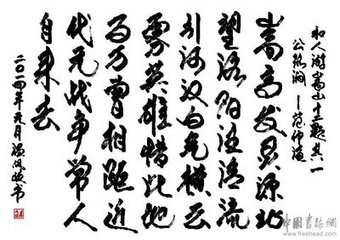 和人游嵩山十二题其一
公路涧—范仲淹
嵩高发灵源北
望洛阳注清流
引河汉白气横云
雾英雄惜此地
百万曾相距近
代无战争常人
自来去
二〇一四年元月温书
中国书法网
www.freehead.com